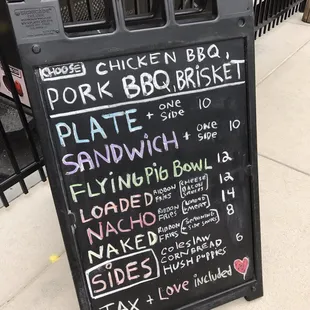 CHOOSE CHICKEN BBQ,
PORK BBQ, BRISKET
PLATE + ONE SIDE 10
SANDWICH + ONE SIDE 10
FLYING PIG BOWL 12
LOADED RIBBON FRIES (CHEESE BACON 12
NACHO RIBBON FRIES 14
NAKED RIBBON FRIES 8
SIDES COLESLAW
CORNBREAD 6
HUSH PUPPIES
TAX + Love included